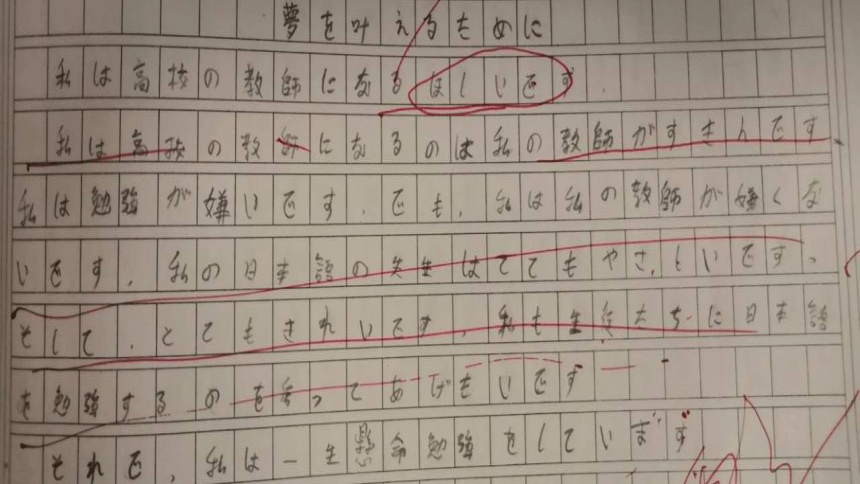 夢を叶えるために
私は高校の教師になるほしいです。
私は高校の教師になるのは私の教師がすきんです
私は勉強が嫌いです。でも、私は私の教師が嫌くな
いです。私の日本語の先生はとてもやさしいです。
そして、とてもきれいです。私も生徒たちに日本語
を勉強するのを手ってあげもいです
それで、私は一生懸命勉強をしています